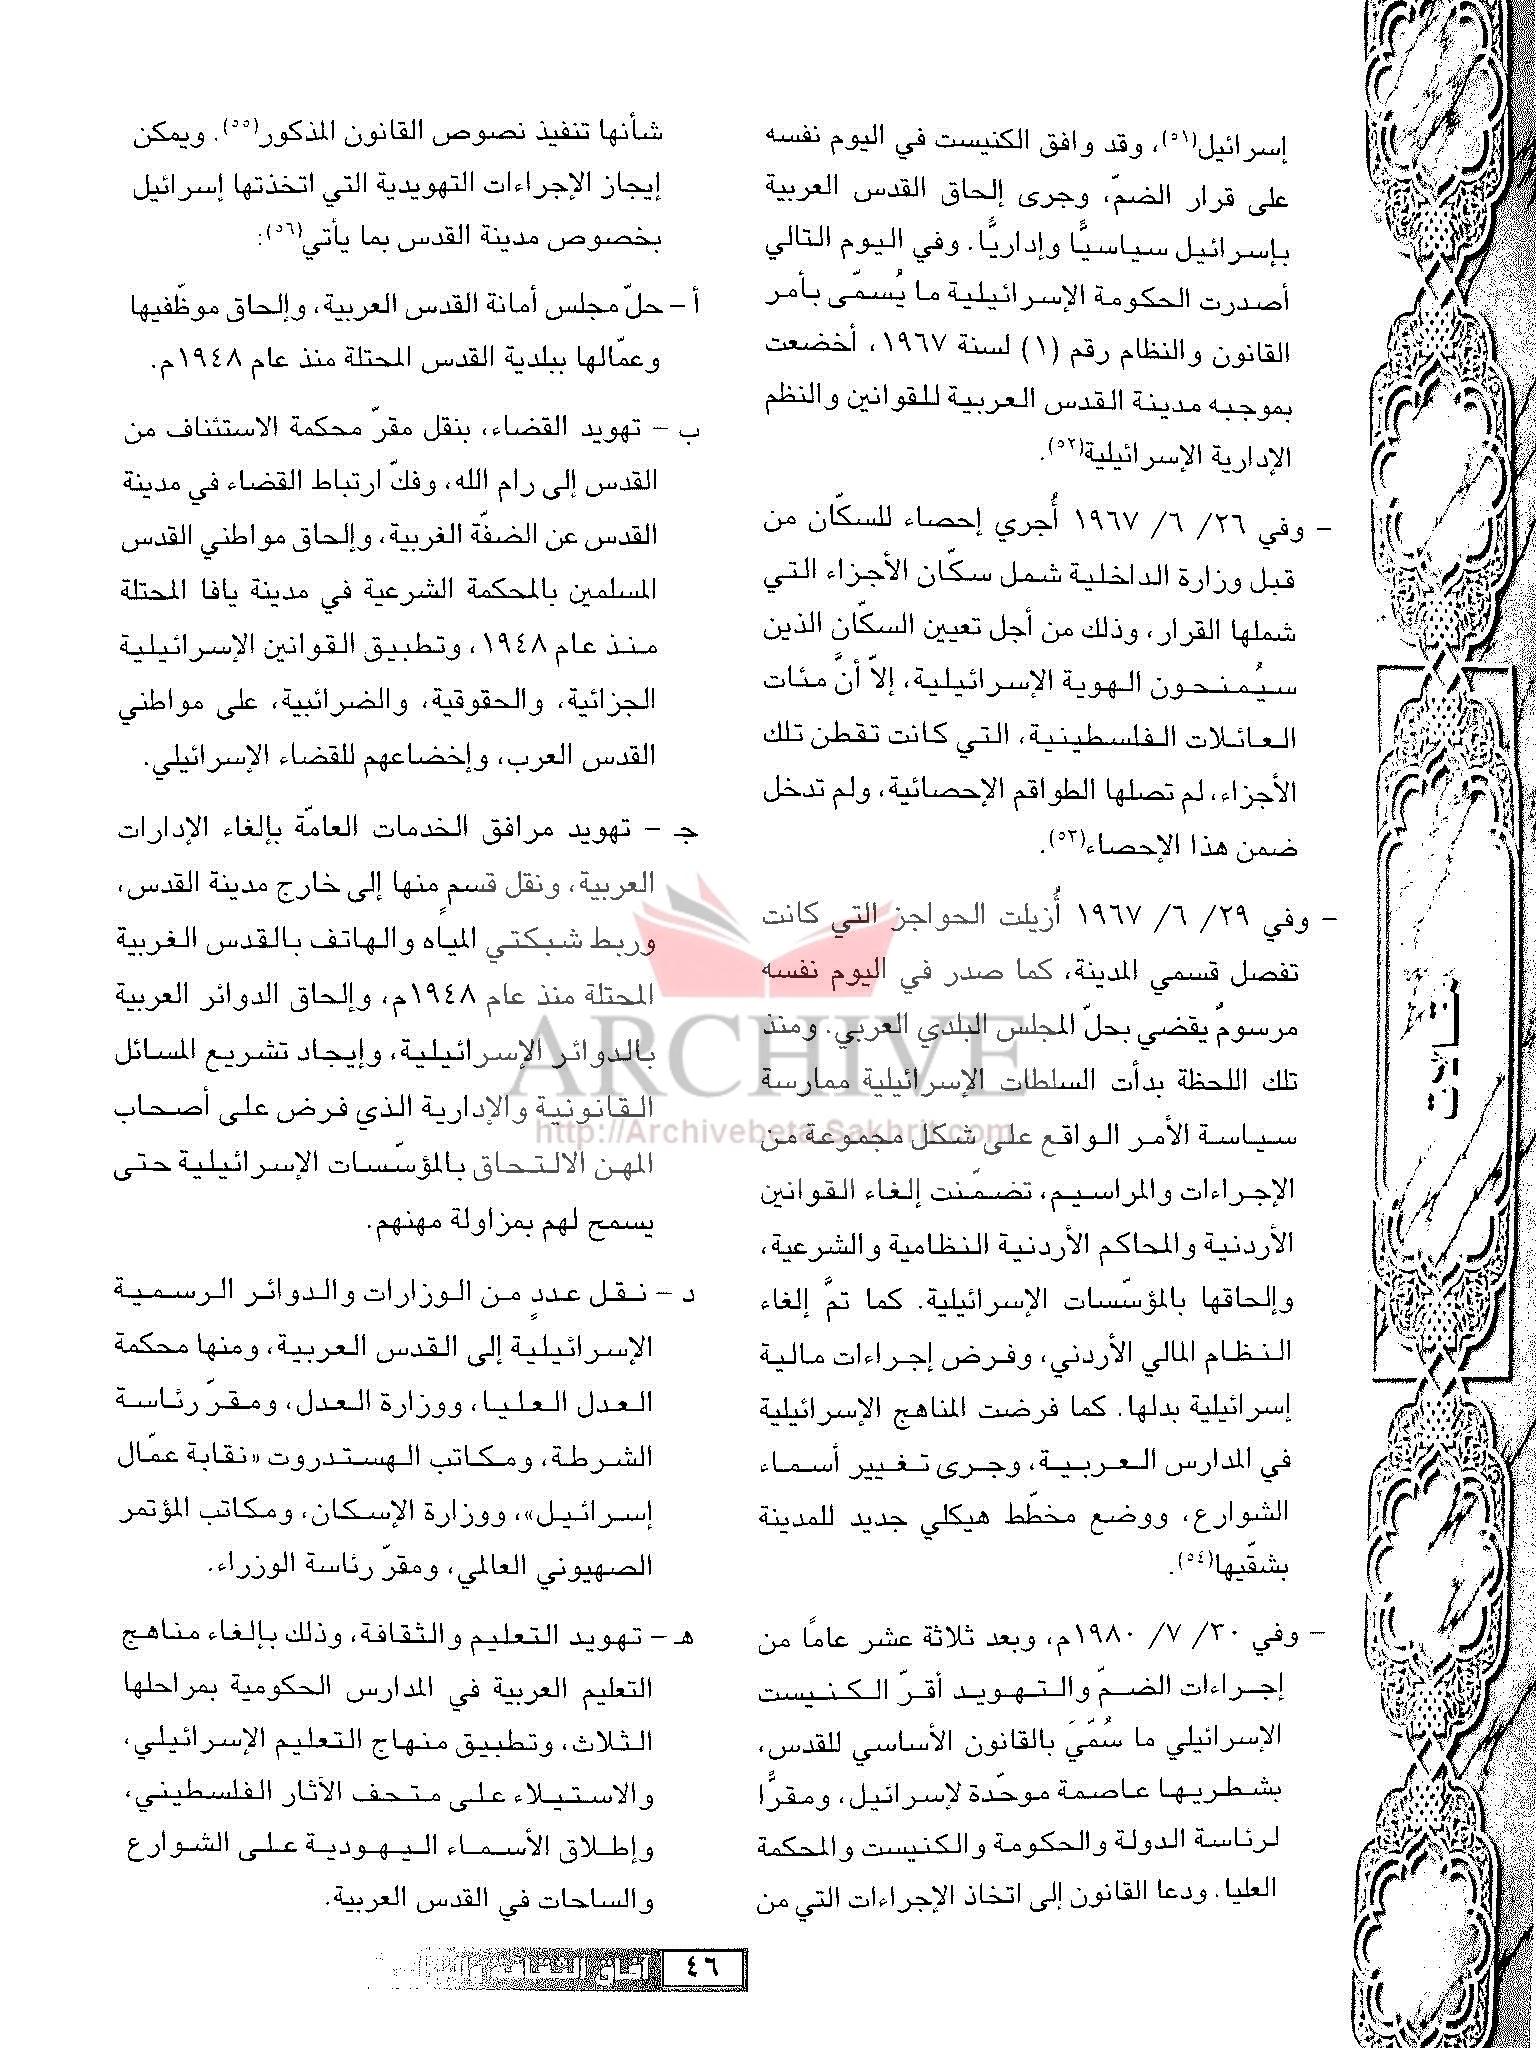 إسرائيل(٥١)، وقد وافق الكنيست في اليوم نفسه
على قرار الضمّ، وجرى إلحاق القدس العربية
بإسرائيل سياسيًّا وإداريًّا. وفي اليوم التالي
أصدرت الحكومة الإسرائيلية ما يُسمّى بأمر
القانون والنظام رقم (١) لسنة ١٩٦٧، أخضعت
بموجبه مدينة القدس العربية للقوانين والنظم
الإدارية الإسرائيلية(٥٢).
- وفي ٢٦/ ٦/ ١٩٦٧ أُجري إحصاء للسكّان من
قبل وزارة الداخلية شمل سكّان الأجزاء التي
شملها القرار، وذلك من أجل تعيين السكّان الذين
سيُمنحون الهوية الإسرائيلية، إلاّ أنَّ مئات
العائلات الفلسطينية، التي كانت تقطن تلك
الأجزاء، لم تصلها الطواقم الإحصائية، ولم تدخل
ضمن هذا الإحصاء(٥٣).
- وفي ٢٩/ ٦/ ١٩٦٧ أُزيلت الحواجز التي كانت
تفصل قسمي المدينة، كما صدر في اليوم نفسه
مرسومٌ يقضي بحلّ المجلس البلدي العربي. ومنذ
تلك اللحظة بدأت السلطات الإسرائيلية ممارسة
سياسة الأمر الواقع على شكل مجموعة من
الإجراءات والمراسيم، تضمّنت إلغاء القوانين
الأردنية والمحاكم الأردنية النظامية والشرعية،
وإلحاقها بالمؤسّسات الإسرائيلية. كما تمَّ إلغاء
النظام المالي الأردني، وفرض إجراءات مالية
إسرائيلية بدلها. كما فرضت المناهج الإسرائيلية
في المدارس العربية، وجرى تغيير أسماء
الشوارع، ووضع مخطّط هيكلي جديد للمدينة
بشقّيها(٥٤).
- وفي ٣٠/ ٧/ ١٩٨٠م، وبعد ثلاثة عشر عاماً من
إجراءات الضمّ والتهويد أقرّ الكنيست
الإسرائيلي ما سُمّيَ بالقانون الأساسي للقدس،
بشطريها عاصمة موحّدة لإسرائيل، ومقرًّا
لرئاسة الدولة والحكومة والكنيست والمحكمة
العليا. ودعا القانون إلى اتخاذ الإجراءات التي من
شأنها تنفيذ نصوص القانون المذكور(٥٥). ويمكن
إيجاز الإجراءات التهويدية التي اتخذتها إسرائيل
بخصوص مدينة القدس بما يأتي(٥٦):
أ - حلّ مجلس أمانة القدس العربية، وإلحاق موظّفيها
وعمّالها ببلدية القدس المحتلة منذ عام ١٩٤٨م.
ب - تهويد القضاء، بنقل مقرّ محكمة الاستئناف من
القدس إلى رام الله، وفكّ ارتباط القضاء في مدينة
القدس عن الضفّة الغربية، وإلحاق مواطني القدس
المسلمين بالمحكمة الشرعية في مدينة يافا المحتلة
منذ عام ١٩٤٨، وتطبيق القوانين الإسرائيلية
الجزائية، والحقوقية، والضرائبية، على مواطني
القدس العرب، وإخضاعهم للقضاء الإسرائيلي.
جـ - تهويد مرافق الخدمات العامّة بإلغاء الإدارات
العربية، ونقل قسمٍ منها إلى خارج مدينة القدس،
وربط شبكتي المياه والهاتف بالقدس الغربية
المحتلة منذ عام ١٩٤٨م، وإلحاق الدوائر العربية
بالدوائر الإسرائيلية، وإيجاد تشريع المسائل
القانونية والإدارية الذي فرض على أصحاب
المهن الالتحاق بالمؤسّسات الإسرائيلية حتى
يسمح لهم بمزاولة مهنهم.
د - نقل عددٍ من الوزارات والدوائر الرسمية
الإسرائيلية إلى القدس العربية، ومنها محكمة
العدل العليا، ووزارة العدل، ومقرّ رئاسة
الشرطة، ومكاتب الهستدروت «نقابة عمّال
إسرائيل»، ووزارة الإسكان، ومكاتب المؤتمر
الصهيوني العالمي، ومقرّ رئاسة الوزراء.
هـ - تهويد التعليم والثقافة، وذلك بإلغاء مناهج
التعليم العربية في المدارس الحكومية بمراحلها
الثلاث، وتطبيق منهاج التعليم الإسرائيلي،
والاستيلاء على متحف الآثار الفلسطيني،
وإطلاق الأسماء اليهودية على الشوارع
والساحات في القدس العربية.
ARCHIVE
http://Archivebeta.Sakhrit.com
٤٦ آفاق الثقافة